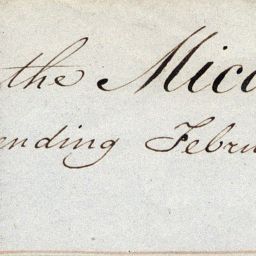 the Mico
ending Febru